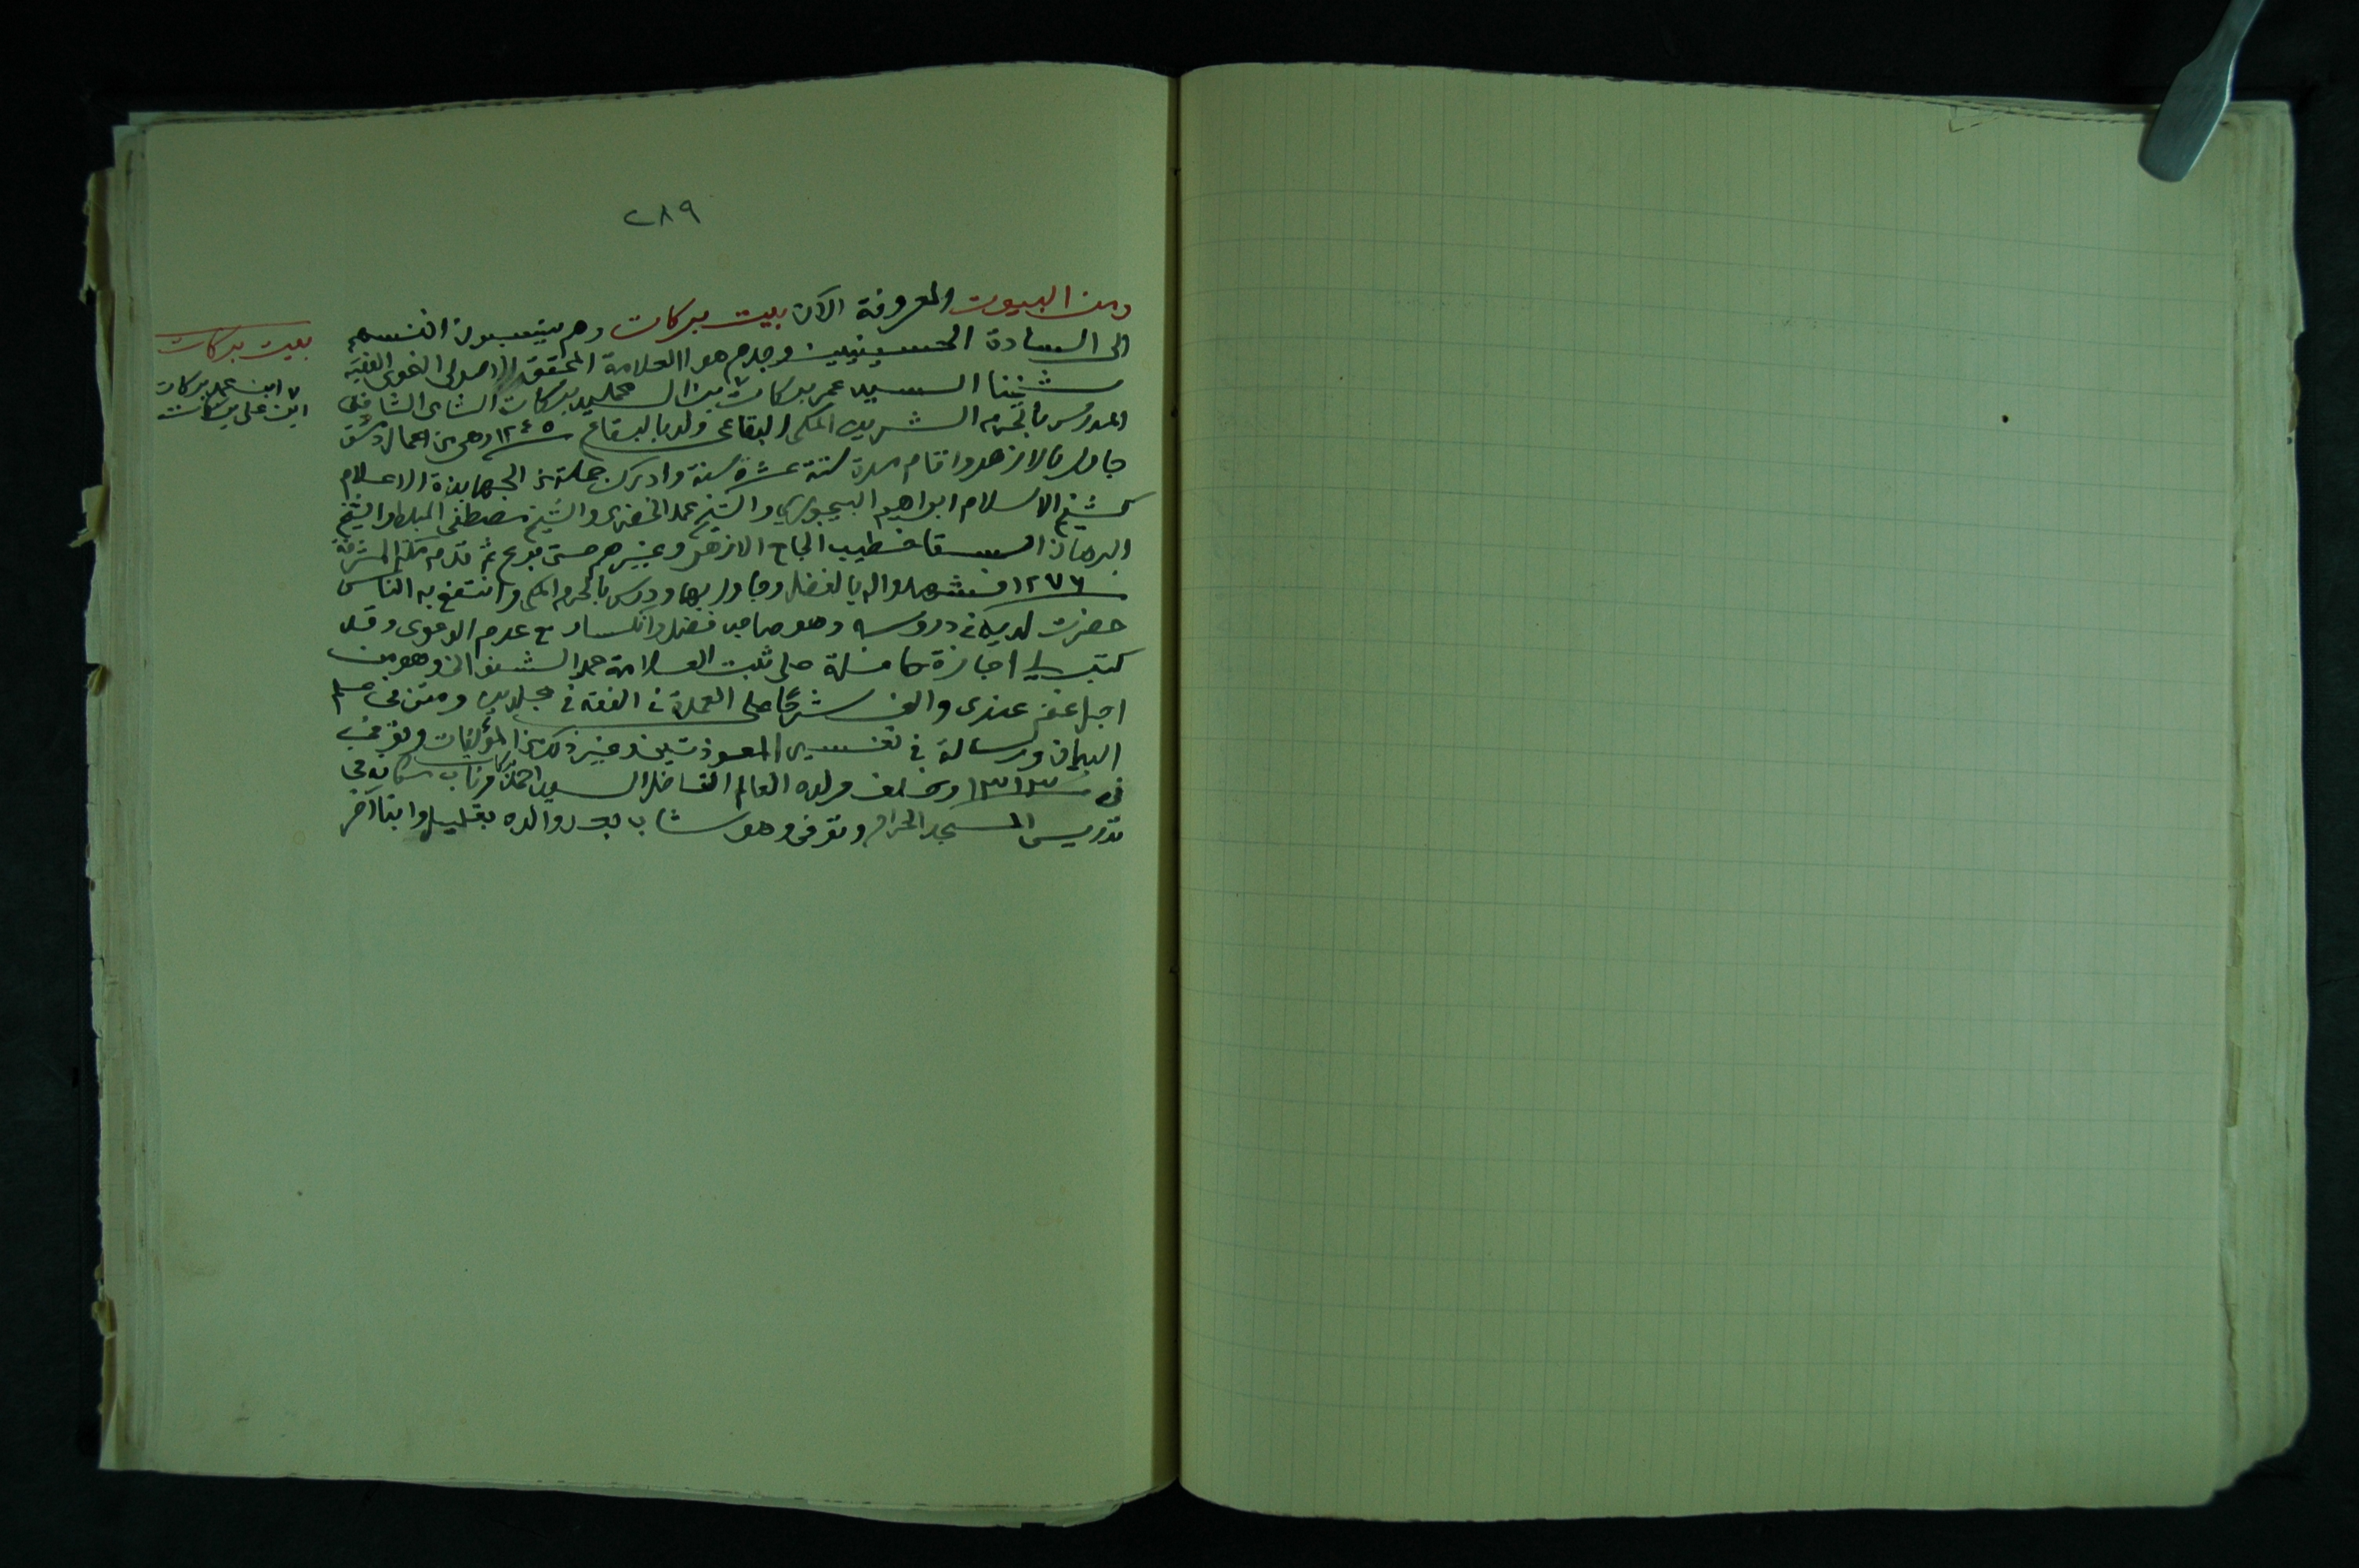 ٢٨٩
ومن البيوت المعروفة الآن بيت بركات وهم ينسبون انفسهم
الى السادة الحسينيين وجدهم هو العلامة المحقق الاصولى النحوى الفقيه
شيخنا السيد عمر بركات بن السيد محمد بركات الشامى الشافعى
المدرس بالحرم الشريف المكى البقاعى ولد بالبقاع سنة ١٢٤٥ وهى من اعمال دمشق
جاور بالازهر واقام مدة ستة عشرة سنة وادرك جملة من الجهابذة الاعلام
كشيخ الاسلام ابراهيم البيجورى والشيخ محمد الخضرى والشيخ مصطفى المبلط والشيخ
البرهان السقا خطيب الجامع الازهر وغيرهم حتى برع ثم قدم مكة المشرفة
سنة ١٢٧٦ فشهدوا له بالفضل وجاور بها ودرس بالحرم المكى وانتفع به الناس
حضرت لديه فى دروسه وهو صاحب فضل وانكسار مع عدم الدعوى وقد
كتب لى اجازة كاملة على ثبت العلامة محمد الشنوانى وهو من
اجل عندى والف شرحا على العمدة فى الفقه فى مجلدين ومتن فى علم
البيان ورسالة فى تفسير المعوذتين وغير ذلك من المؤلفات وتوفى
فى سنة ١٣١٣ وخلف ولده العالم الفاضل السيد احمد بركات وناب مكانه فى
تدريس المسجد الحرام وتوفى وهو شاب بعد والده بقليل وابنا آخر
بيت بركات
٧ ابن محمد بركات
ابن على بركات